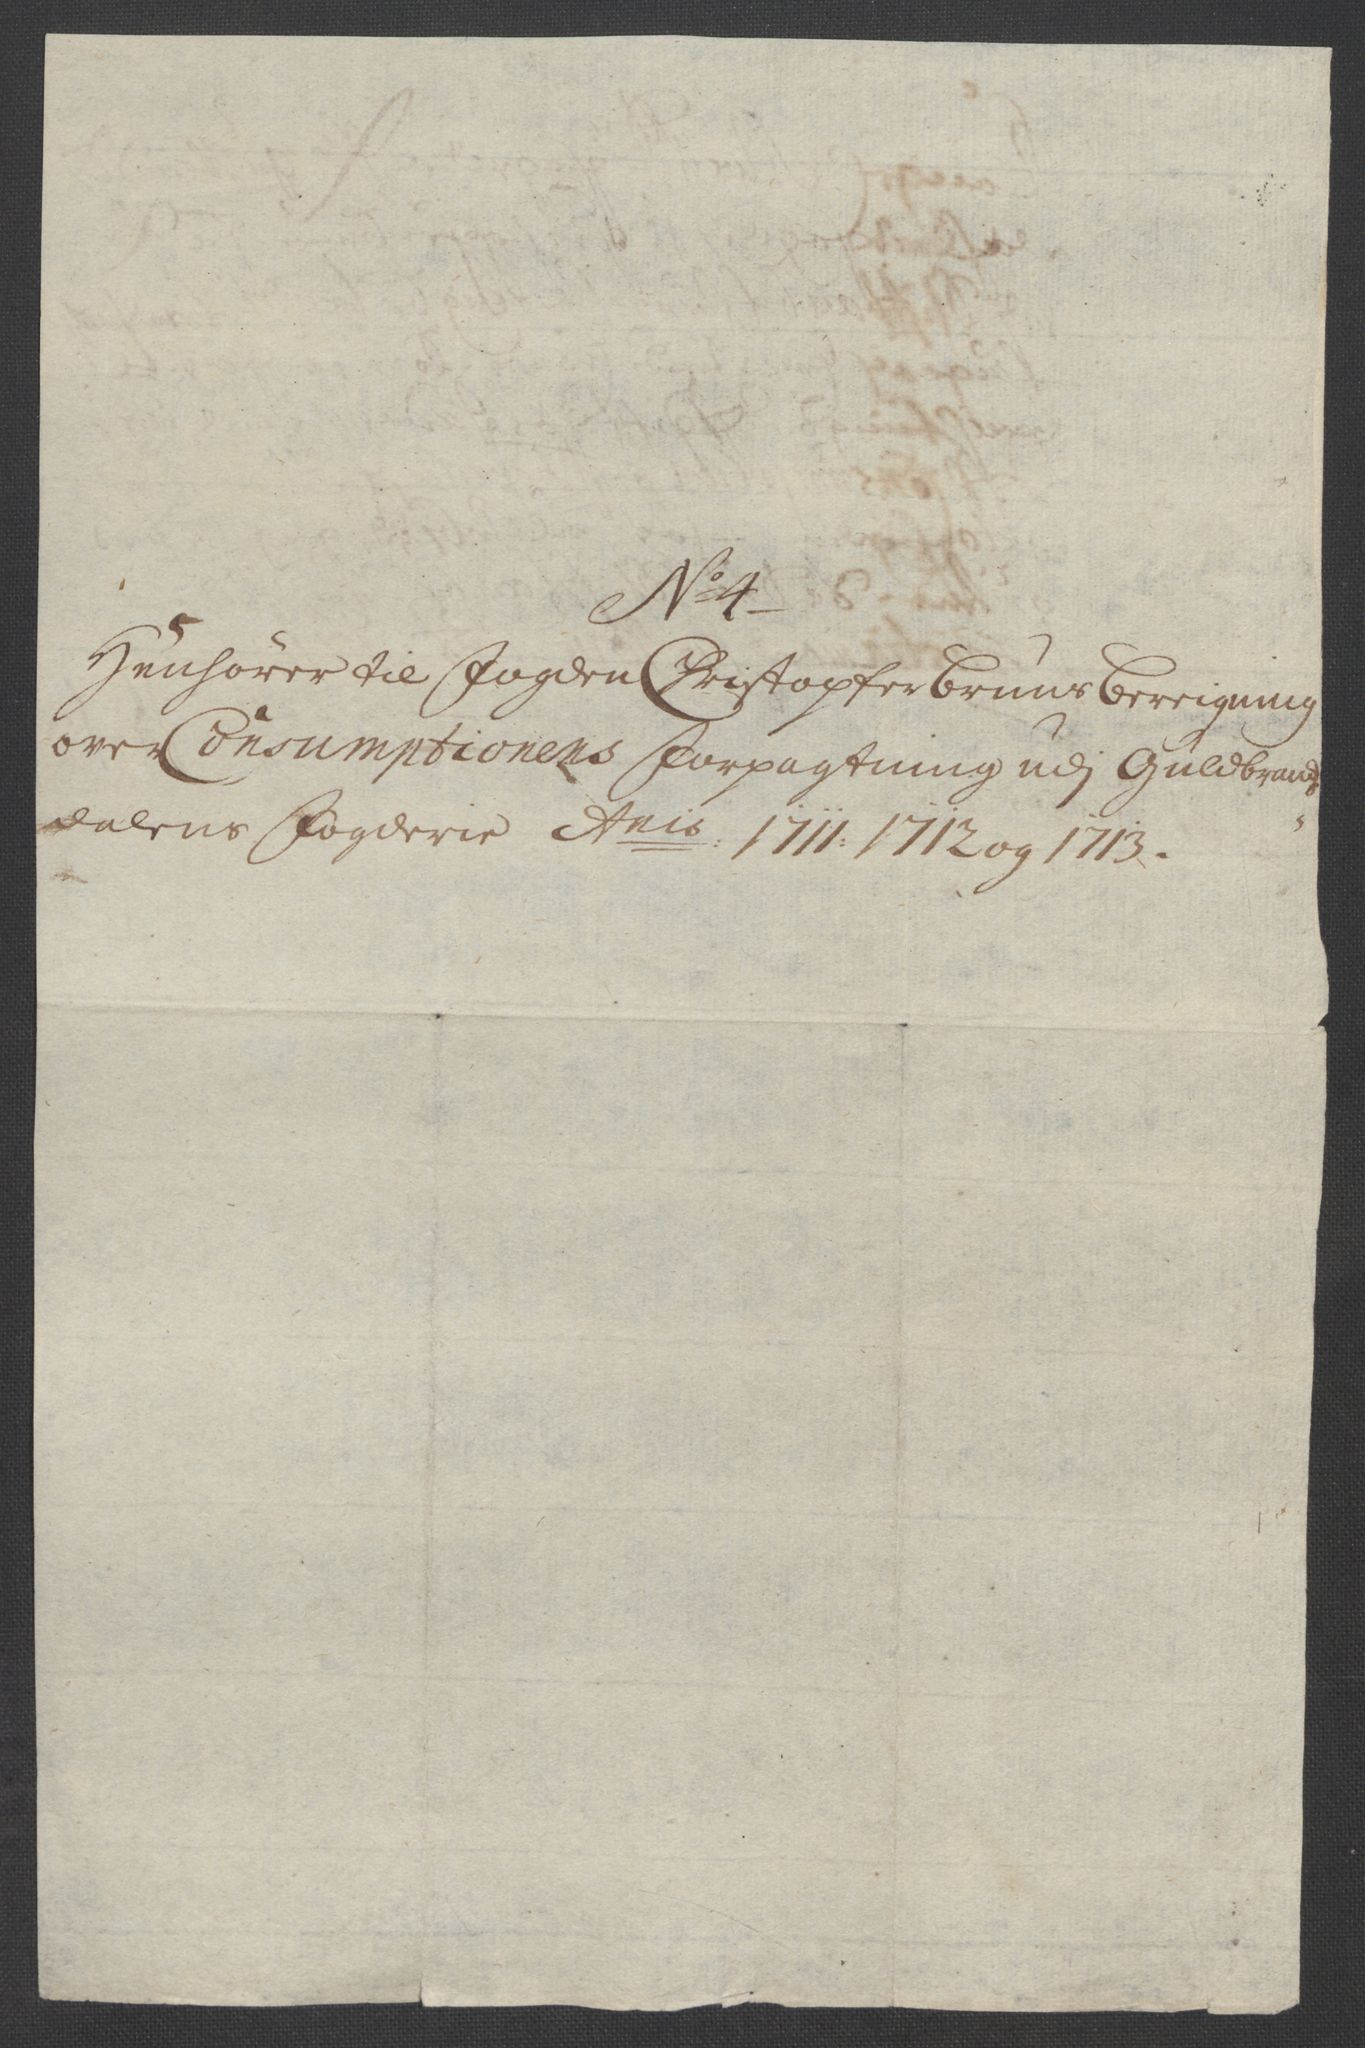 No 4
Henhører til Fogden Christopfer Bruns Bereigning
over Consumptionens Forpagtning udj Guldbrands
dalens Fogderie Anis 1711: 1712 og 1713.